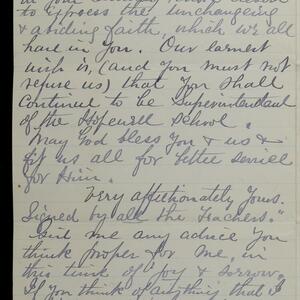 to express the unchangeing
& abiding faith, which we all
have in you. Our earnest
wish is, (and you must not
refuse us) that you shall
Continue to be Superintendent
of the Hopewell School.
May God bless you & us &
fit us all for better service
for Him.
Very affectionately Yours.
Signed by all the Teachers."
me any advice you
think proper for me, in
this time of joy & sorrow.
If you think of anything that I